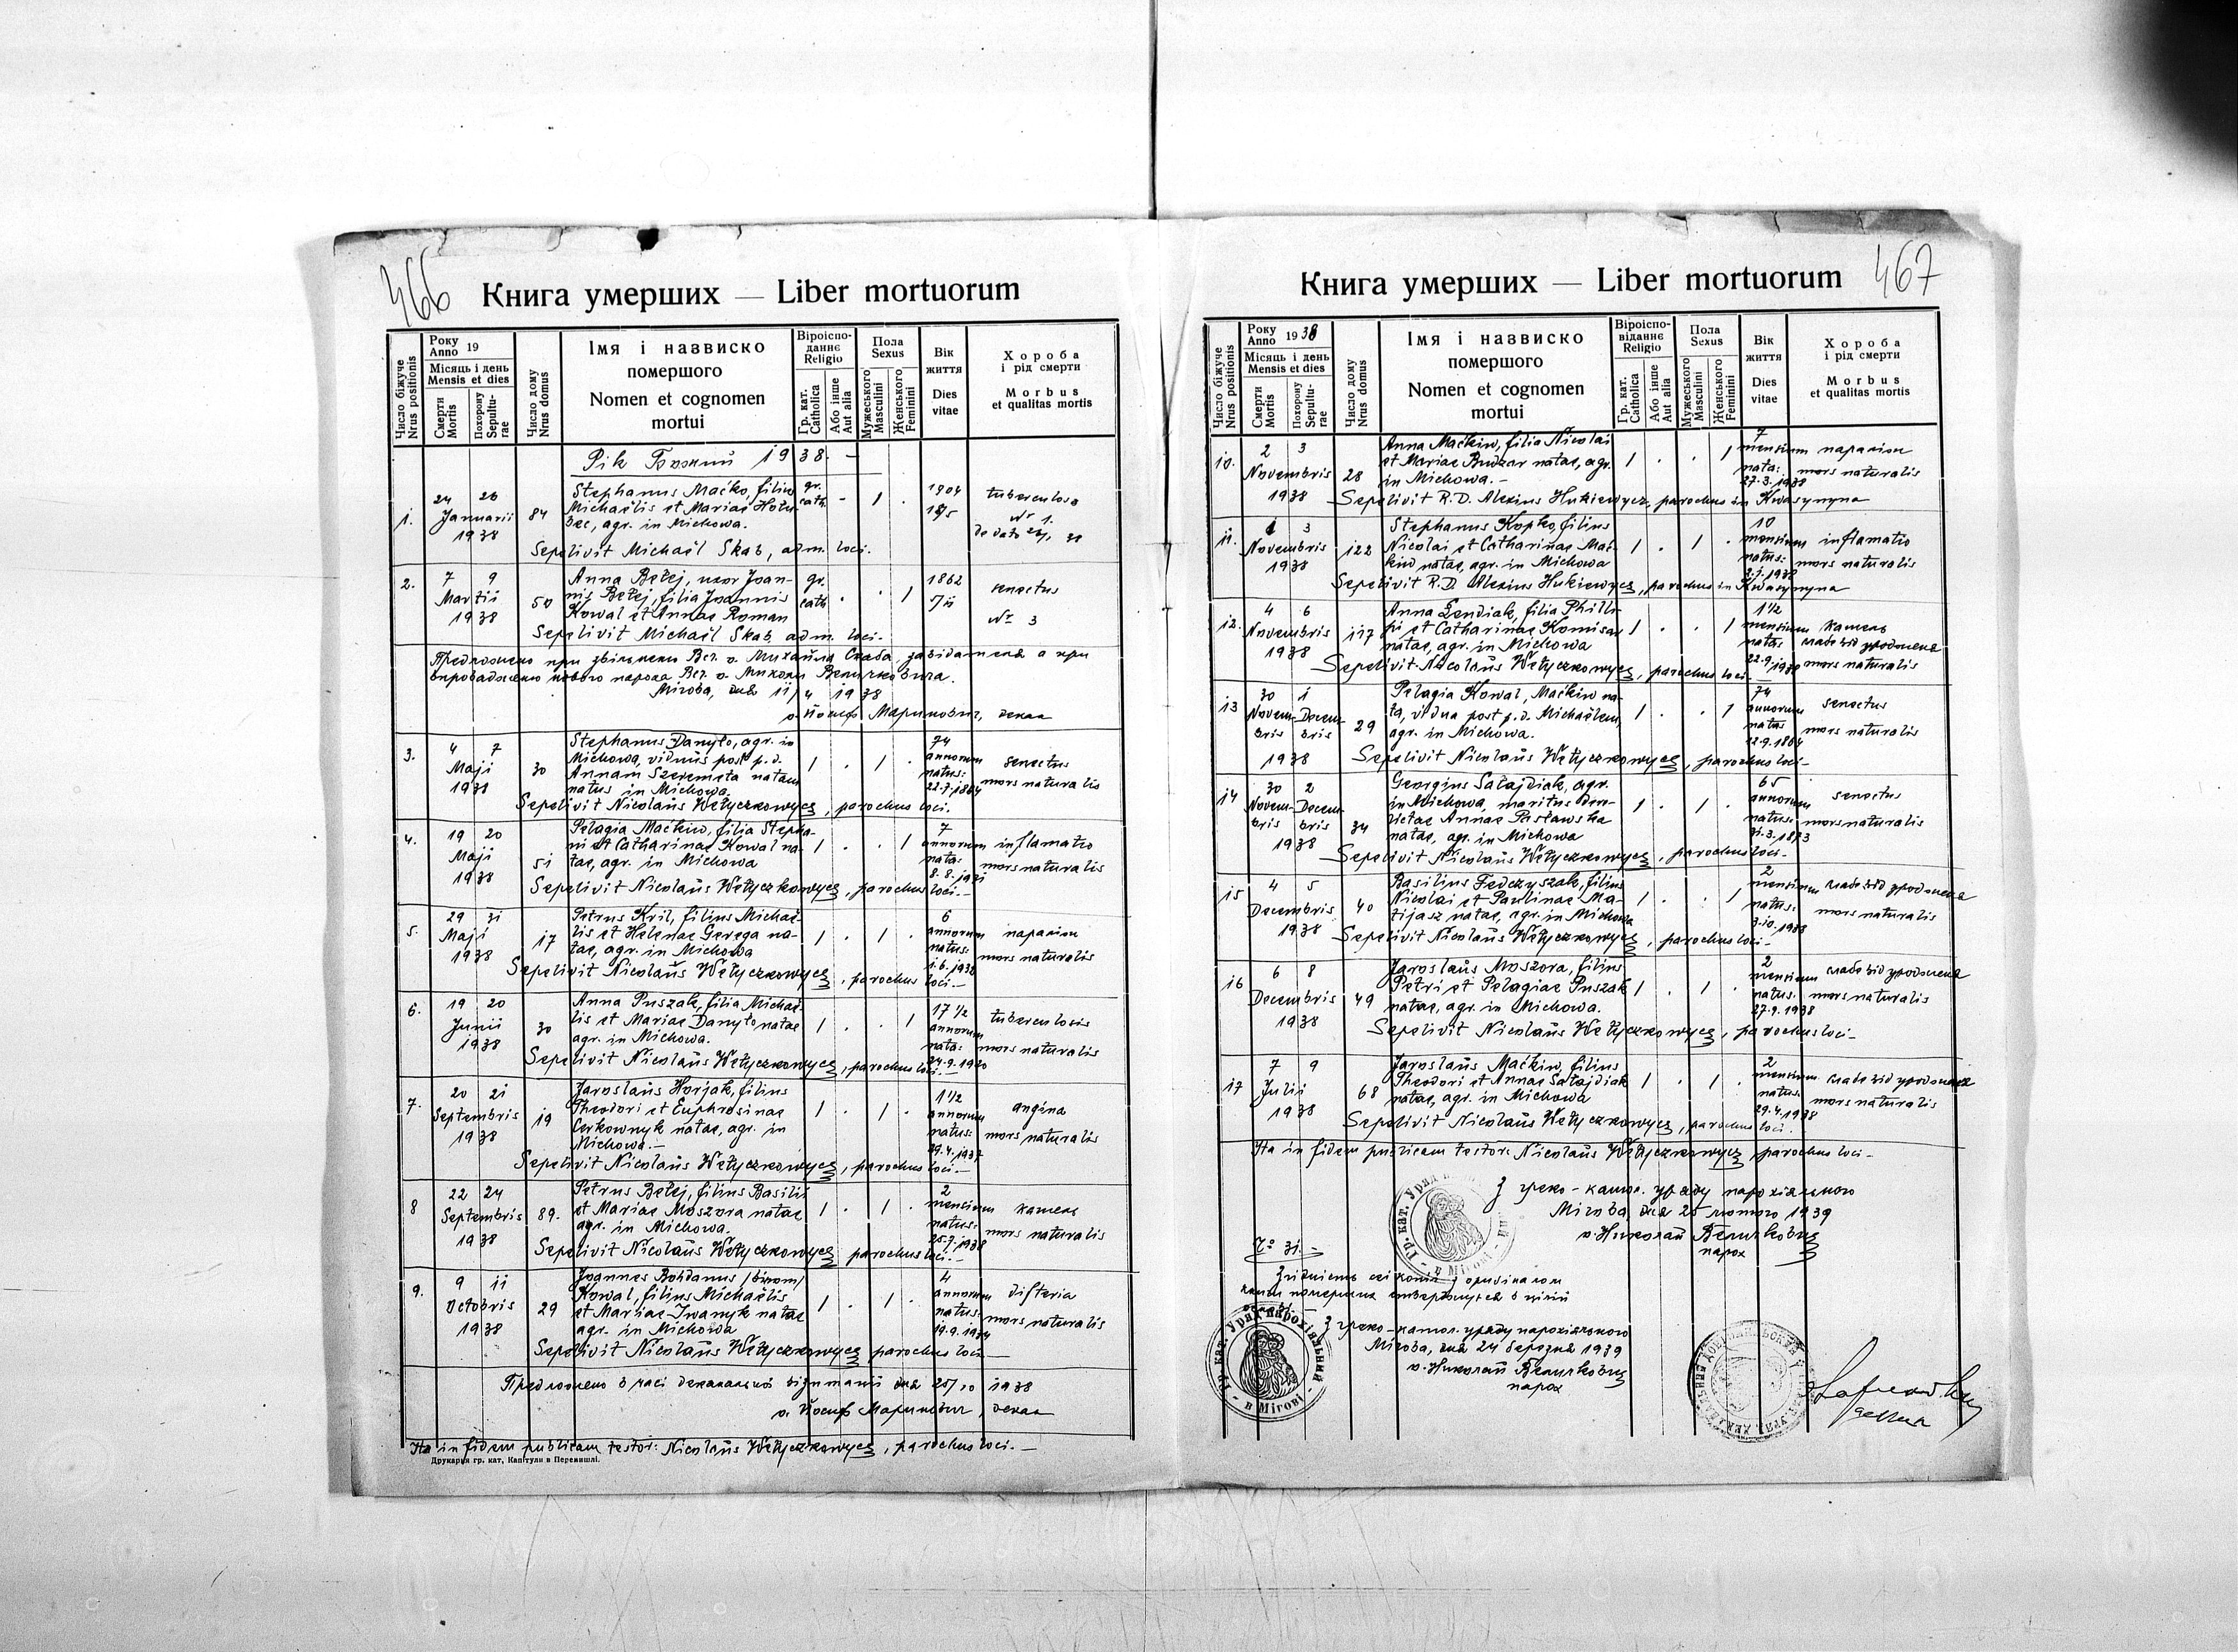 466
Книга умерших — Liber mortuorum
Число біжуче
Nrus positionis
Року
Anno 19
Місяць і день
Mensis et dies
Смерти
Mortis
Похорону
Sepultu-
rae
Число дому
Nrus domus
Імя і назвиско
помершого
Nomen et cognomen
mortui
Віроіспо-
даннє
Religio
Гр. кат.
Catholica
Або інше
Aut alia
Пола
Sexus
Мужеського
Masculini
Женського
Feminini
Вік
життя
Dies
vitae
Хороба
і рід смерти
Morbus
et qualitas mortis
Рік Божий 1938. —
1.
24 26
Januarii
1938
84
Stephanus Maćko, filius
Michaëlis et Mariae Hołu-
bec, agr. in Michowa.
gr.
cath.
- 1 .
1904
tuberculosa
Nr 1.
Sepelivit Michaël Skab, adm. loci.
2.
7 9
Martii
1938
50
Anna Bełej, uxor Joan-
nis Bełej, filia Joannis
Kowal et Annae Roman
gr.
cath
. . 1
1862
7/ii
senectus
Nr 3
Sepelivit Michaël Skab, adm. loci.
Предложено при звільненю Всч. о. Михайла Скаба, завідателя а при
впровадженю нового пароха Всч. о. Миколи Величковича.
Мігова, дня 11/4 1938
о. Йосиф Маринович, декан
3.
4 7
Maji
1938
30
Stephanus Danyło, agr. in
Michowa, viduus post p. d.
Annam Szeremeta natam
natus in Michowa.
1 . 1 .
74
annorum
natus:
22.7.1864
senectus
mors naturalis
Sepelivit Nicolaus Wełyczkowycz, parochus loci.
4.
19 20
Maji
1938
51
Pelagia Maćkiw, filia Stepha-
ni et Catharinae Kowal na-
tae, agr. in Michowa
1 . . 1
7
annorum
nata:
8.8.1931
inflamatio
mors naturalis
Sepelivit Nicolaus Wełyczkowycz, parochus loci.—
5.
29 31
Maji
1938
17
Petrus Kril, filius Michaë-
lis et Helenae Gerega na-
tae, agr. in Michowa
1 . 1 .
6
annorum
natus:
1.6.1932
mors naturalis
Sepelivit Nicolaus Wełyczkowycz, parochus loci.—
6.
19 20
Junii
1938
30
Anna Puszak, filia Michaë-
lis et Mariae Danyło natae
agr. in Michowa.
1 . . 1
17 1/2
annorum
nata:
24.9.1920
tuberculosis
mors naturalis
Sepelivit Nicolaus Wełyczkowycz, parochus loci.—
7.
20 21
Septembris
1938
19
Jaroslaus Horjak, filius
Theodori et Euphrosinae
Cerkownyk natae, agr. in
Michowa.—
1 . 1 .
1 1/2
annorum
natus:
29.4.1937
angina
mors naturalis
Sepelivit Nicolaus Wełyczkowycz, parochus loci.—
8
22 24
Septembris
1938
89.
Petrus Bełej, filius Basilii
et Mariae Moszora natae
agr. in Michowa.
1 . 1 .
2
mensium
natus:
25.7.1938
кашель
mors naturalis
Sepelivit Nicolaus Wełyczkowycz parochus loci.—
9.
9 11
Octobris
1938
29
Joannes Bohdanus /binom/
Kowal, filius Michaëlis
et Mariae Iwanyk natae
agr. in Michowa
1 . 1 .
4
annorum
natus:
19.9.1934
difteria
mors naturalis
Sepelivit Nicolaus Wełyczkowycz parochus loci—
Предложено в часі деканальної візитації дня 25/10 1938
о. Йосиф Маринович, декан
Ita in fidem publicam testor: Nicolaus Wełyczkowycz, parochus loci.—
Друкарня гр. кат. Капітули в Перемишлі.
467
Книга умерших — Liber mortuorum
Число біжуче
Nrus positionis
Року
Anno 1938
Місяць і день
Mensis et dies
Смерти
Mortis
Похорону
Sepultu-
rae
Число дому
Nrus domus
Імя і назвиско
помершого
Nomen et cognomen
mortui
Віроіспо-
віданнє
Religio
Гр. кат.
Catholica
Або інше
Aut alia
Пола
Sexus
Мужеського
Masculini
Женського
Feminini
Вік
життя
Dies
vitae
Хороба
і рід смерти
Morbus
et qualitas mortis
10.
2 3
Novembris
1938
28
Anna Maćkiw, filia Nicolai
et Mariae Budzar natae, agr.
in Michowa.—
1 . . 1
7
mensium
nata:
27.3.1938
mors naturalis
Sepelivit R.D. Alexius Hukiewycz, parochus in Kwasynyna
11.
1 3
Novembris
1938
122
Stephanus Kopko, filius
Nicolai et Catharinae Mać-
kiw natae, agr. in Michowa
1 . 1 .
10
mensium
natus:
inflamatio
mors naturalis
Sepelivit R.D. Alexius Hukiewycz, parochus in Kwasynyna
12.
4 6
Novembris
1938
117
Anna Lendiak, filia Philli-
pi et Catharinae Komisar
natae, agr. in Michowa
1 . . 1
1 1/2
mensium
nata:
22.9.1938
кашель
слабе від уродження
mors naturalis
Sepelivit Nicolaus Wełyczkowycz, parochus loci.
13
30 1
Novem- Decem-
bris bris
1938
29
Pelagia Kowal, Maćkiw na-
ta, vidua post p. d. Michaëlem,
agr. in Michowa.
1 . . 1
74
annorum
nata
12.9.1864
senectus
mors naturalis
Sepelivit Nicolaus Wełyczkowycz, parochus loci—
14
30 2
Novem- Decem-
bris bris
1938
34
Georgius Sałajdiak, agr.
in Michowa, maritus
Annae Pasławska
natae, agr. in Michowa
1 . 1 .
65
annorum
natus:
31.3.1873
senectus
mors naturalis
Sepelivit Nicolaus Wełyczkowycz, parochus loci—
15
4 5
Decembris
1938
40
Basilius Fedczyszak, filius
Nicolai et Paulinae Ma-
tijasz natae, agr. in Michowa
1 . . 1
2
mensium
natus:
3.10.1938
слабе від уродження
mors naturalis
Sepelivit Nicolaus Wełyczkowycz, parochus loci—
16
6 8
Decembris
1938
49
Jaroslaus Moszora, filius
Petri et Pelagiae Puszak
natae, agr. in Michowa.
1 . 1 .
2
mensium
natus.
27.9.1938
слабе від уродження
mors naturalis
Sepelivit Nicolaus Wełyczkowycz, parochus loci—
17
7 9
Julii
1938
68
Jaroslaus Maćkiw, filius
Theodori et Annae Sałajdiak
natae, agr. in Michowa
1 . 1 .
2
mensium
natus.
29.4.1938
слабе від уродження
mors naturalis
Sepelivit Nicolaus Wełyczkowycz, parochus loci.
Ita in fidem publicam testor: Nicolaus Wełyczkowycz, parochus loci—
З греко-катол. уряду парохіяльного
Мігова, дня 25 лютого 1939
о. Николай Величкович
парох
Гр. кат. Уряд
в Мігові
Ч: 31.—
Згідність сеї копії з оригіналом
книги померших стверджується в цілій
З греко-катол. уряду парохіяльного
Мігова, дня 24 березня 1939
о. Николай Величкович
парох
Гр. кат. Уряд парохіяльний
в Мігові
декан